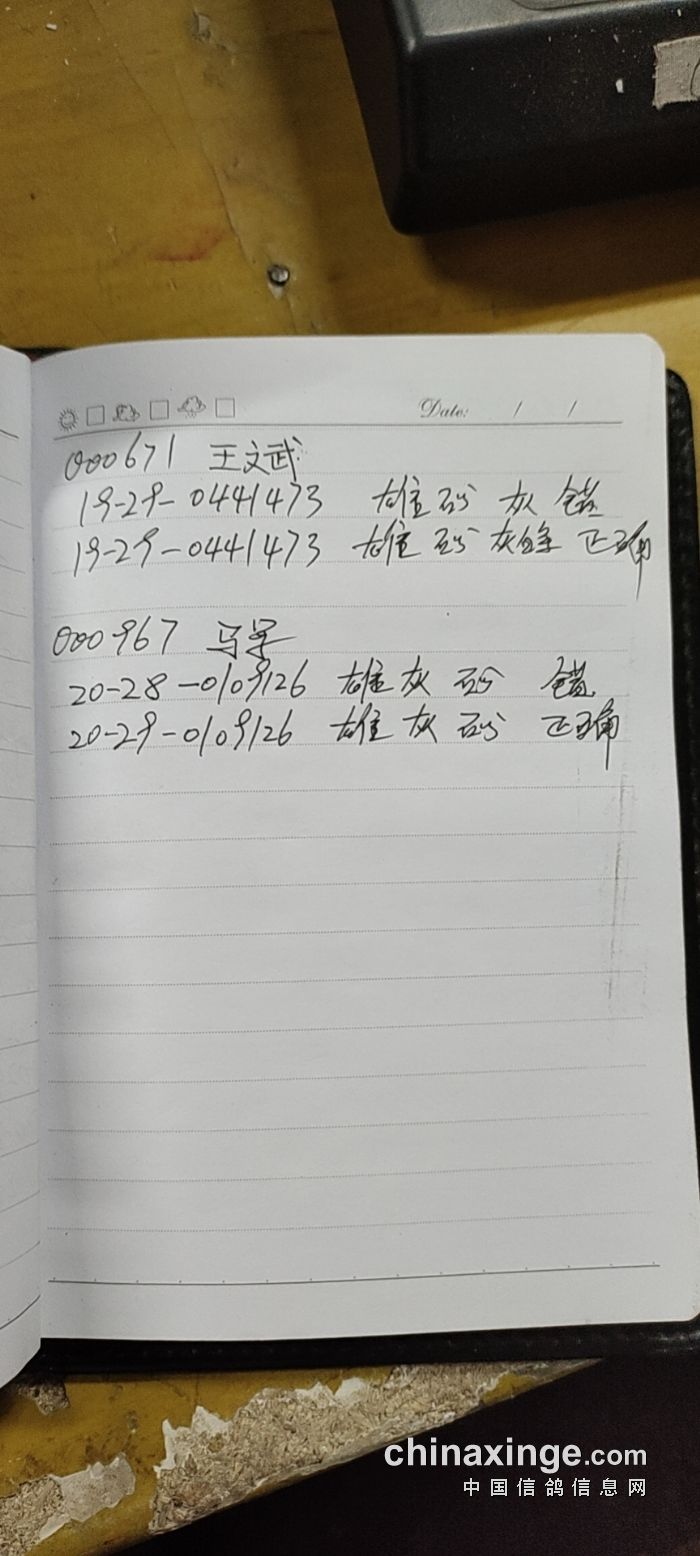 Date: / /
000671 王文武
19-29-0441473 雄 砂 灰 错
19-29-0441473 雄 砂 灰绛 正确
000967 马军
20-28-0109126 雄 灰 砂 错
20-29-0109126 雄 灰 砂 正确
chinaxinge.com
中国信鸽信息网